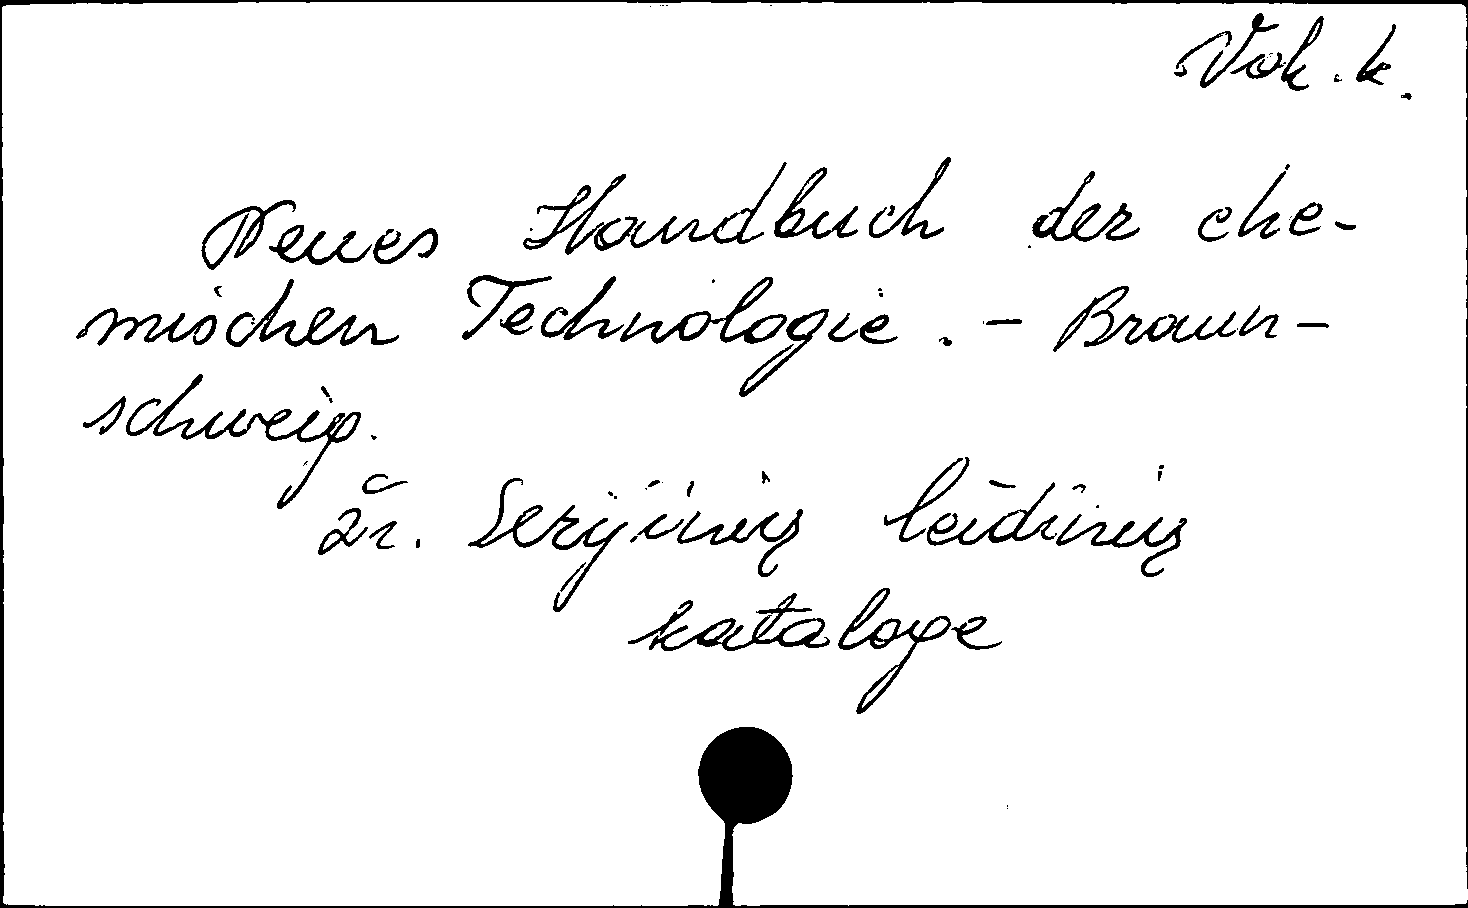 Vok. k.
Neues Handbuch der che-
mischen Technologie. - Braun-
schweig.
žr. Serijinių leidinių
kataloge